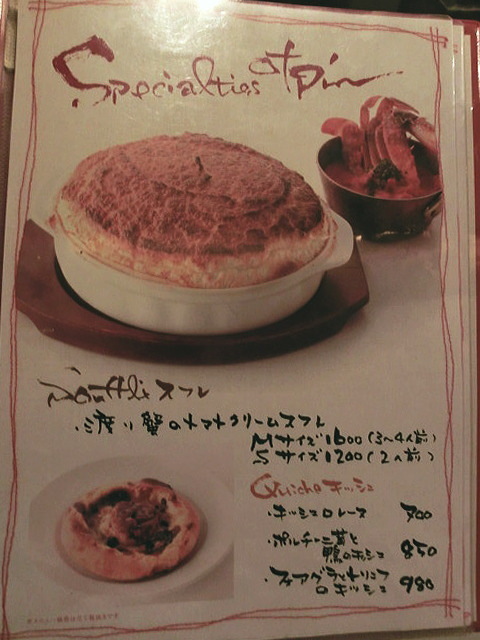 Specialties
Souffle スフレ
・渡り蟹のトマトクリームスフレ
Mサイズ 1600 (3〜4人前)
Sサイズ 1200 (2人前)
Quiche キッシュ
・キッシュロレーヌ 800
・ポルチーニ茸と
鴨のキッシュ 850
・フォアグラとトリュフ
のキッシュ 980